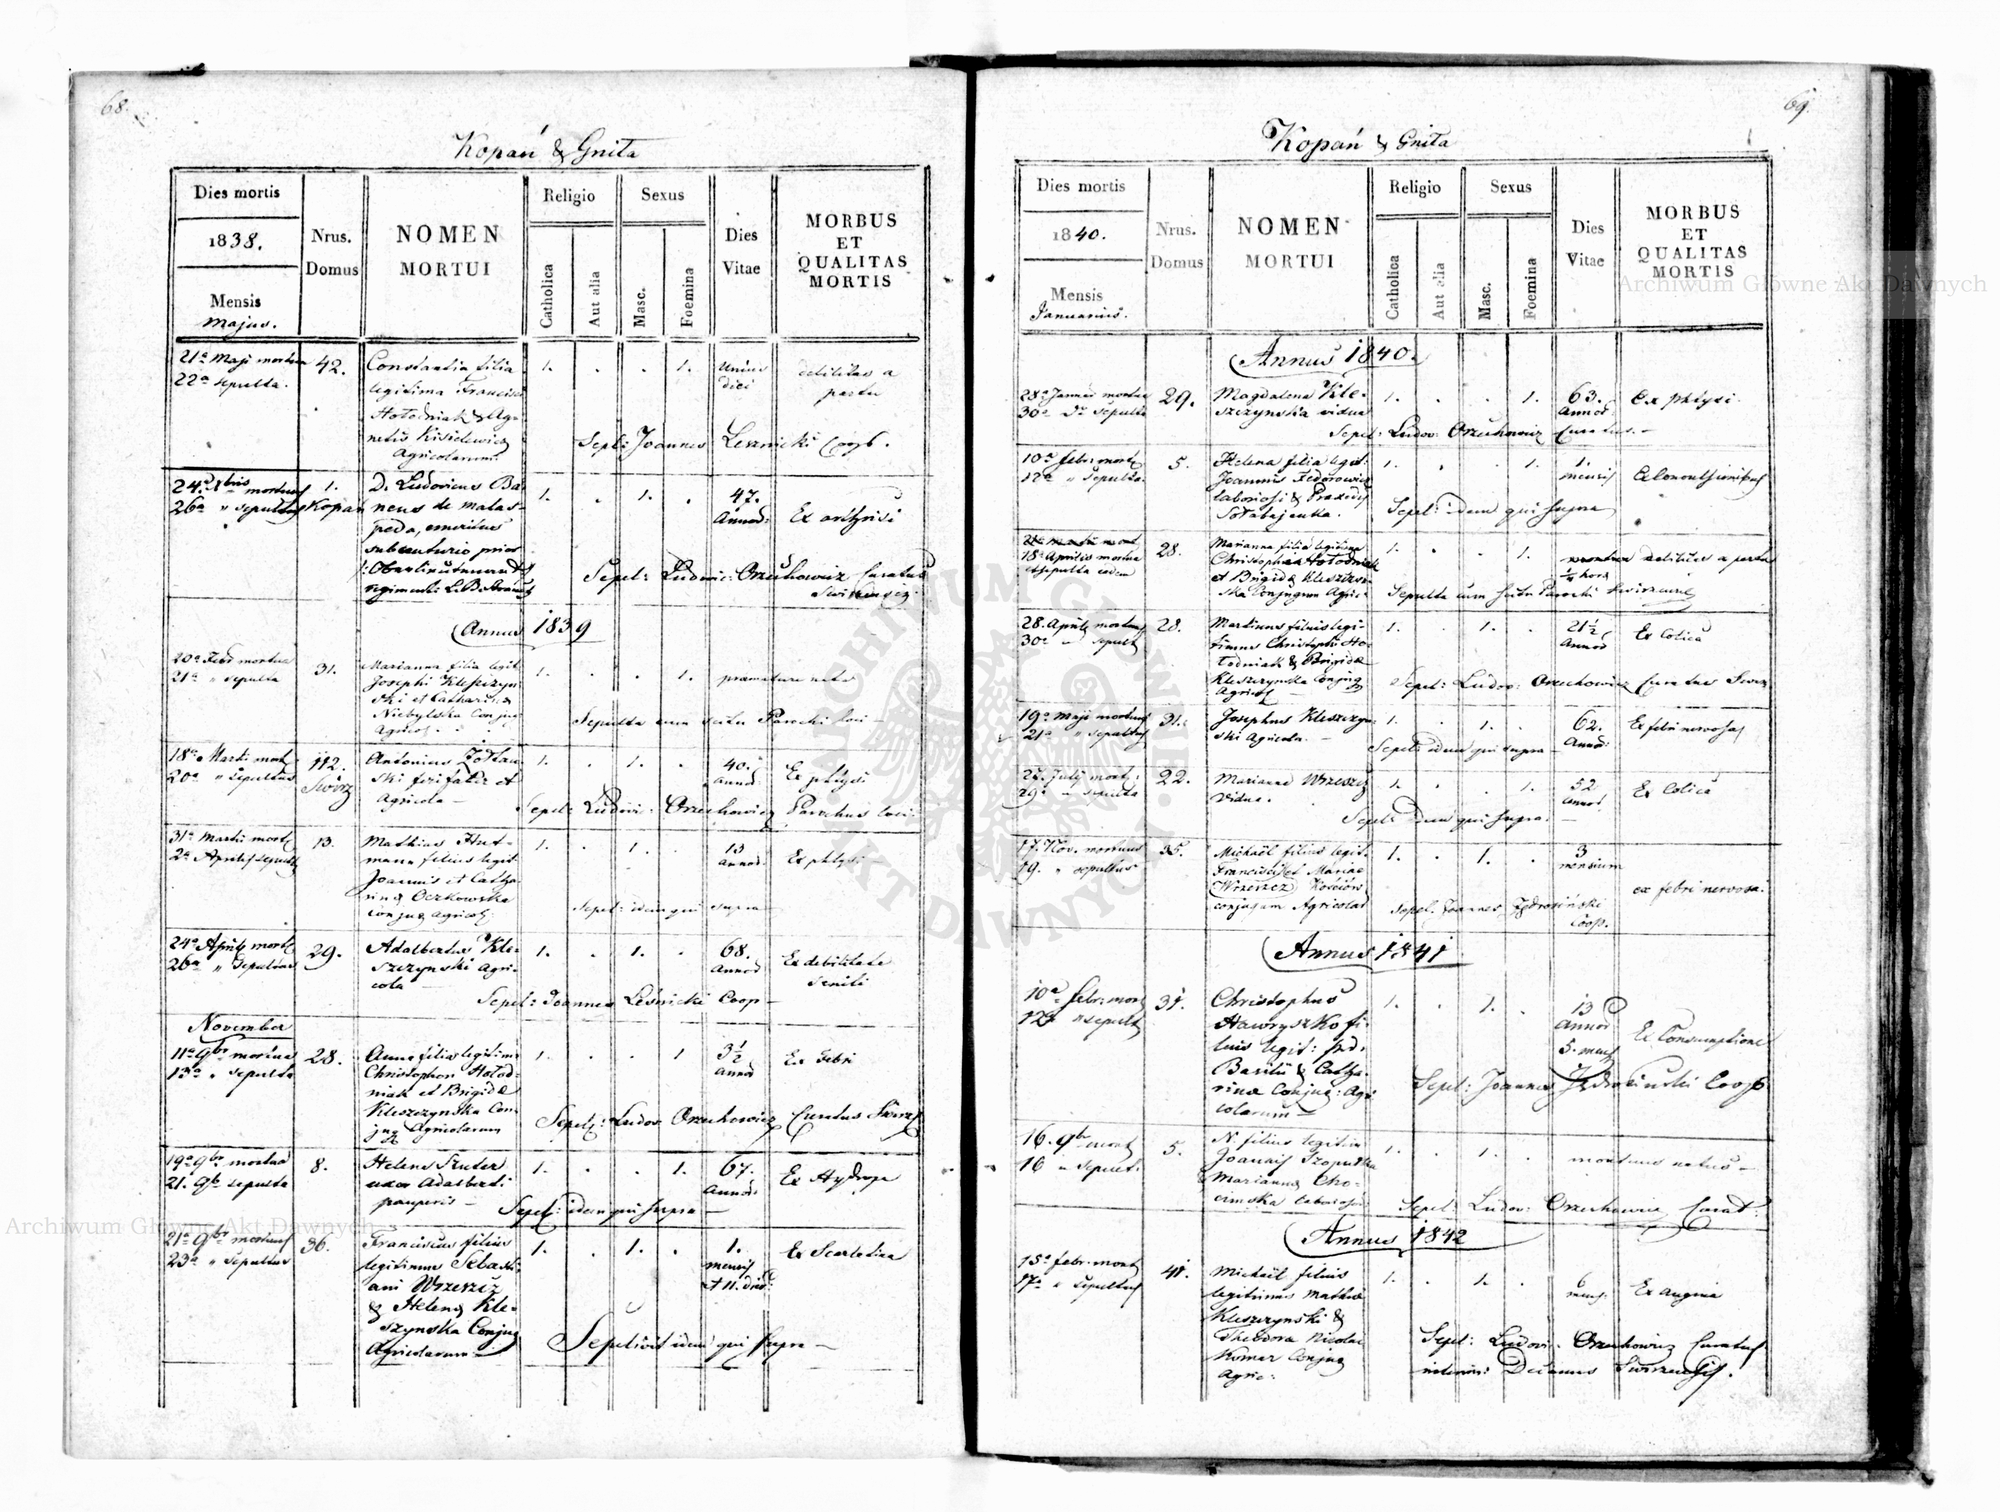 68.
Kopań & Gnita
Dies mortis
1838.
Mensis
Majus.
Nrus.
Domus
NOMEN
MORTUI
Religio
Catholica
Aut alia
Sexus
Masc.
Foemina
Dies
Vitae
MORBUS
ET
QUALITAS
MORTIS
21a Maji mortua
22a sepulta.
42.
Constantia filia
legitima Francisci
Hołodniak & Ag-
netis Kisielewicz
Agricolarum.
1. . . 1.
unius
diei
debilitas a
partu
Sepel: Joannes Leśnicki Coop.
24a Xbris mortuus
26a " sepultus
1.
Kopań
D. Ludovicus Ba-
roneus de Malas-
peda, emeritus
1. . 1. .
47.
Annor:
Ex arthrisi
Sepel: Ludovic: Orzechowicz Curatus
Annus 1839
20a Febr mortua
21a " sepulta
31.
Marianna filia legit.
Josephi Kleszczyn-
ski et Catharina
Niebylska Conjug
Agricol.
1. . . 1.
praemature nata
Sepulta cum scitu Parochi loci —
18a Martii mort
20a " sepultus
112.
Świrz
Antonius Żołtań-
ski et
Agricola —
1. . 1. .
40.
annor:
Ex phtysi
Sepel: Ludovi: Orzechowicz Parochus loci.
31a Martii mort
2a Aprilis sepult
13.
Mathias Hut-
mann filius legit.
Joannis et Catha-
rina Oczkowska
conjug agricol:
1. . 1. .
13
annor:
Ex phtysi —
Sepel: idem qui supra —
24a Aprilis mort
26a " sepultus
29.
Adalbertus Kle-
szczynski Agri-
cola —
1. . 1. .
68.
Annor
Ex debilitate
senili
Sepel: Joannes Leśnicki Coop —
November
11a 9br mortua
13a " sepulta
28.
Anna filia legitima
Christophori Hołod-
niak et Brigida
Kleszczynska Con-
jug Agricolarum
1. . . 1
3½
annor
Ex Febri
Sepel: Ludov Orzechowicz Curatus Świrz
19a 9br mortua
21. 9b sepulta
8.
Helena Szuter
uxor Adalberti
pauperis —
1. . . 1.
67.
Annor:
Ex Hydrope
Sepel: idem qui supra —
21a 9br mortuus
23a " sepultus
36.
Franciscus filius
legitimus Sebasti-
ani Wrzeszcz
& Helena Kle-
szynska Conjug
Agricolarum —
1. . 1. .
1.
mensis
et 11. dier:
Ex Scarlatina
Sepelivit idem qui supra —
69.
Kopań & Gnita
Dies mortis
1840.
Mensis
Januarius.
Nrus.
Domus
NOMEN
MORTUI
Religio
Catholica
Aut alia
Sexus
Masc.
Foemina
Dies
Vitae
MORBUS
ET
QUALITAS
MORTIS
Annus 1840.
28a Januar mortua
30a Dt sepulta
29.
Magdalena Kle-
szczynska vidua
1. . . 1.
63.
Annor
Ex phtysi.
Sepel: Ludov: Orzechowicz Curatus. —
10a febr: mort
12a " sepulta
5.
Helena filia legit:
Joannis Fedorowicz
laboriosi & Praxedis
1. . . 1.
1.
mensis
Sepel: idem qui supra
18a Aprilis mortua
et sepulta eodem
28.
Marianna filia legitima
Christophi Hołodniak
et Brigida Kleszczyn-
ska Conjugum Agric-
1. . . 1.
¼ hora
debilitas a partu
Sepulta cum scitu Parochi Świrzensis
28. Aprilis mortuus
30a " sepult
28.
Martinus filius legi-
timus Christophi Ho-
łodniak & Brigida
Kleszczynska Conjug
Agricol —
1. . 1. .
21½
Annor
Ex Colica
Sepel: Ludov: Orzechowicz Curatus Świrz
19a Maji mortuus
21a " sepultus
31.
Josephus Kleszczyn-
ski Agricola. —
1. . 1. .
62.
Annor:
Ex febri nervosa
Sepel: idem qui supra —
27. July mort:
29a " sepulta
22.
Marianna Wrzeszcz
Vidua.
1. . . 1.
52
annor.
Ex Colica
Sepel: idem qui supra.
17. Nov. mortuus
19. " sepultus
35.
Michaël filius legit.
Francisci et Marina
Wrzeszcz Kościów
conjugum Agricolar
1. . 1. .
3
mensium
ex febri nervosa.
sepel. Joannes Jędrosiński
Coop.
Annus 1841
10a febr: mort
12a " sepult
31.
Christophus
Hawryszko fi-
lius legit:
Basilii & Catha-
rina Conjug: Agri
colarum —
1. . 1. .
13
Annor
5. mens
Ex Consumptione
Sepel: Joannes Jędrosinski Coop
16. 9br mort
16 " sepult.
5.
N. filius legitim
Joannis Szopudka
Marianna Cho-
cimska laborios
1. . 1. .
mortuus natus —
Sepel: Ludov: Orzechowicz Curat:
Annus 1842
15a febr. mort
17a " sepultus
41.
Michaël filius
legitimus Mathia
Kleszczynski &
Theodora Nicolai
Komar Conjug
Agric:
1. . 1. .
6
mens:
Ex angina
Sepel: Ludovi: Orzechowicz Curatus
interim: Decanus Świrzensis.
ARCHIWUM GŁÓWNE AKT DAWNYCH
Archiwum Główne Akt Dawnych
Archiwum Główne Akt Dawnych